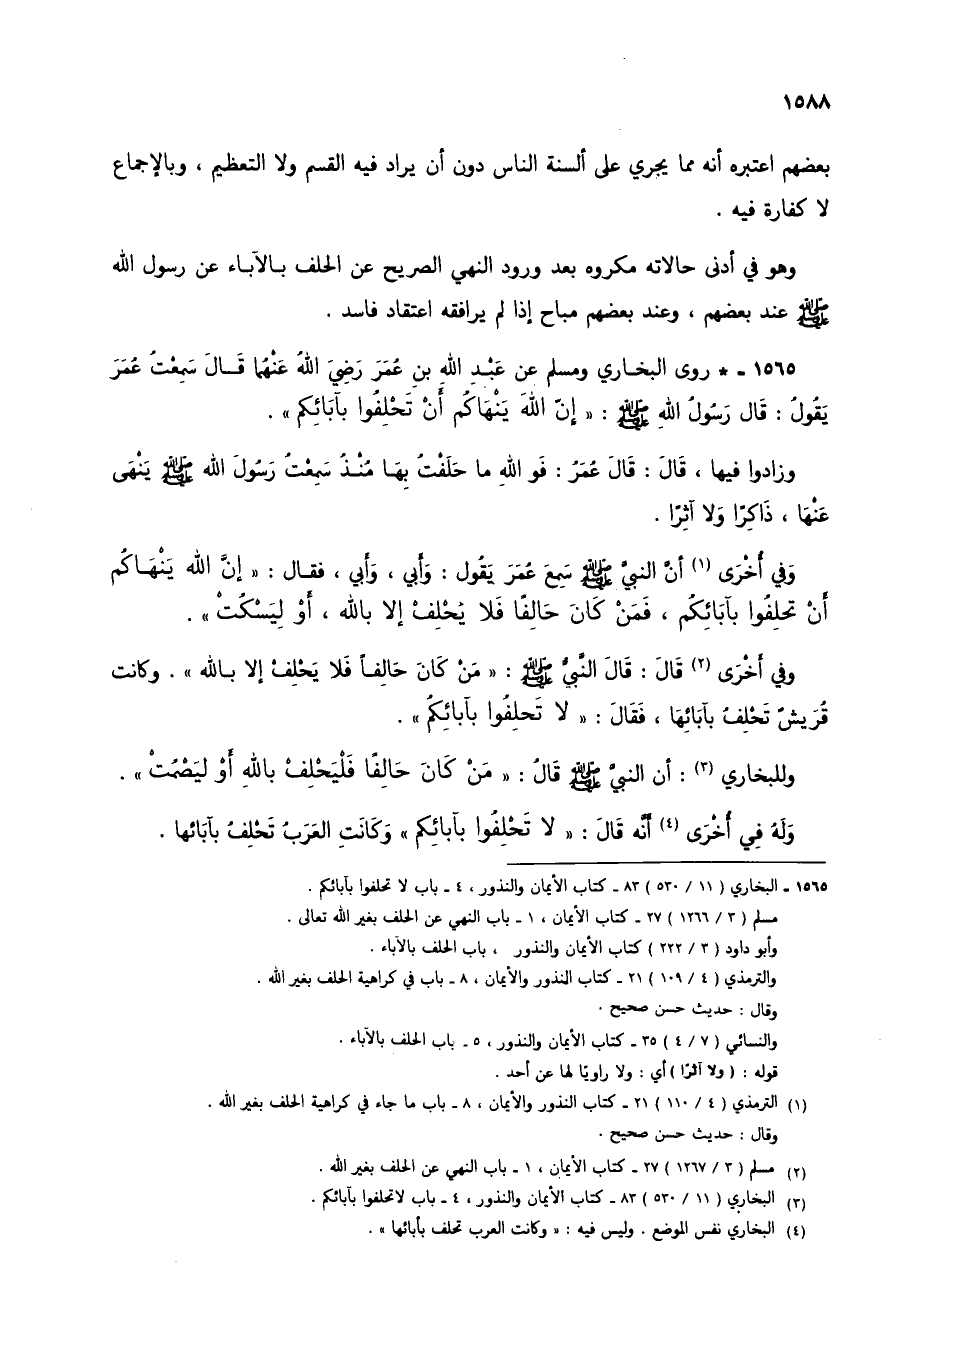 ١٥٨٨
بعضهم اعتبره أنه مما يجري على ألسنة الناس دون أن يراد فيه القسم ولا التعظيم ، وبالإجماع
لا كفارة فيه .
وهو في أدنى حالاته مكروه بعد ورود النهي الصريح عن الحلف بالآباء عن رسول الله
ﷺ عند بعضهم ، وعند بعضهم مباح إذا لم يرافقه اعتقاد فاسد .
١٥٦٥ - * روى البخاري ومسلم عن عَبْدِ اللهِ بنِ عُمَرَ رَضِيَ اللهُ عَنْهُما قَالَ سَمِعْتُ عُمَرَ
يَقُولُ : قَال رَسُولُ اللهِ ﷺ : « إنّ اللهَ يَنْهَاكُم أَنْ تَحْلِفُوا بآبَائِكم » .
وزادوا فيها ، قَالَ : قَالَ عُمَرُ : فَو اللهِ ما حَلَفْتُ بِهَا مُنْذُ سَمِعْتُ رَسُولَ الله ﷺ يَنْهَى
عَنْهَا ، ذَاكِرًا وَلا آثِرًا .
وَفي أُخْرَى (١) أَنَّ النبيَّ ﷺ سَمِعَ عُمَرَ يَقُول : وَأَبي ، وَأَبي ، فقال : « إنَّ الله يَنْهَاكُم
أَنْ تحلِفُوا بآبَائِكُم ، فَمَنْ كَانَ حَالِفًا فَلا يُحْلِفْ إلا بالله ، أَوْ لِيَسْكُتْ » .
وفي أُخْرَى (٢) قَالَ : قَالَ النَّبيُّ ﷺ : « مَنْ كَانَ حَالِفاً فَلا يَحْلِفْ إلا بالله » . وكانت
قُرَيشٌ تَحْلِفُ بآبَائِهَا ، فَقَالَ : « لا تَحلِفُوا بآبائِكُم » .
وللبخاري (٣) : أن النبيَّ ﷺ قَالُ : « مَنْ كَانَ حَالِفًا فَلْيَحْلِفْ باللهِ أَوْ لِيَصْمُتْ » .
وَلَهُ فِي أُخْرَى (٤) أَنَّه قَالَ : « لا تَحْلِفُوا بآبائِكم » وَكَانَتِ العَرَبُ تَحْلِفُ بآبَائها .
١٥٦٥ - البخاري ( ١١ / ٥٣٠ ) ٨٣ - كتاب الأيمان والنذور ، ٤ - باب لا تحلفوا بآبائكم .
مسلم ( ٣ / ١٢٦٦ ) ٢٧ - كتاب الأيمان ، ١ - باب النهي عن الحلف بغير الله تعالى .
وأبو داود ( ٣ / ٢٢٢ ) كتاب الأيمان والنذور ، باب الحلف بالآباء .
والترمذي ( ٤ / ١٠٩ ) ٢١ - كتاب النذور والأيمان ، ٨ - باب في كراهية الحلف بغير الله .
وقال : حديث حسن صحيح .
والنسائي ( ٧ / ٤ ) ٣٥ - كتاب الأيمان والنذور ، ٥ - باب الحلف بالآباء .
قوله : ( ولا آثرًا ) أي : ولا راويًا لها عن أحد .
(١) الترمذي ( ٤ / ١١٠ ) ٢١ - كتاب النذور والأيمان ، ٨ - باب ما جاء في كراهية الحلف بغير الله .
وقال : حديث حسن صحيح .
(٢) مسلم ( ٣ / ١٢٦٧ ) ٢٧ - كتاب الأيمان ، ١ - باب النهي عن الحلف بغير الله .
(٣) البخاري ( ١١ / ٥٣٠ ) ٨٣ - كتاب الأيمان والنذور ، ٤ - باب لاتحلفوا بآبائكم .
(٤) البخاري نفس الموضع . وليس فيه : « وكانت العرب تحلف بأبائها » .